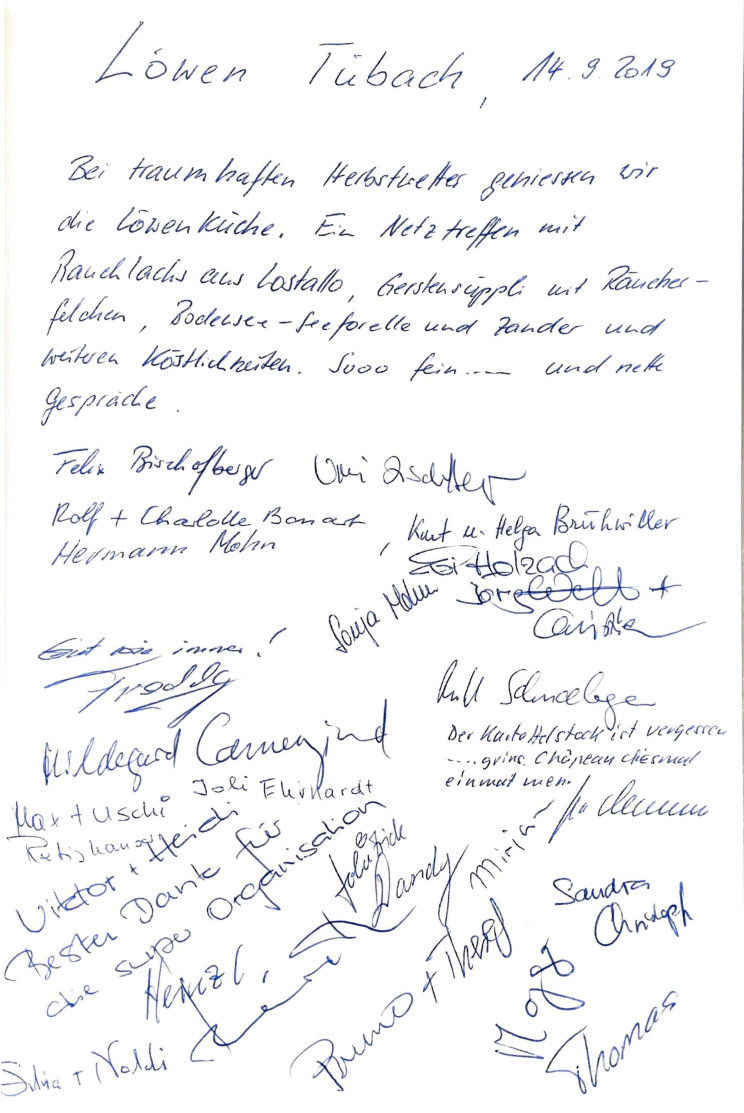 Löwen Tübach, 14.9.2019
Bei traumhaften Herbstwetter geniessen wir
die Löwenküche. Ein Netztreffen mit
Rauchlachs aus Lostallo, Gerstensüppli mit Räucher-
felchen, Bodensee-Seeforelle und Zander und
weiteren Köstlichkeiten. Sooo fein.... und nette
Gespräche.
Felix Bischofberger
Rolf + Charlotte
Hermann Mohn
, Kurt u. Helga Brühwiller
Holzach
Sonja Mohn
Jörg +
Gut wie immer!
Freddy
Der Kartoffelstock ist vergessen
....grins. Chapeau diesmal
einmal mehr.
Hildegard Camenzind
Joli Ehrhardt
Max + Uschi
Viktor + Heidi
Bester Dank für
die super Organisation
Dandy
Sandra
Christoph
Heinz L.
Bruno +
Thomas
Silvia + Noldi